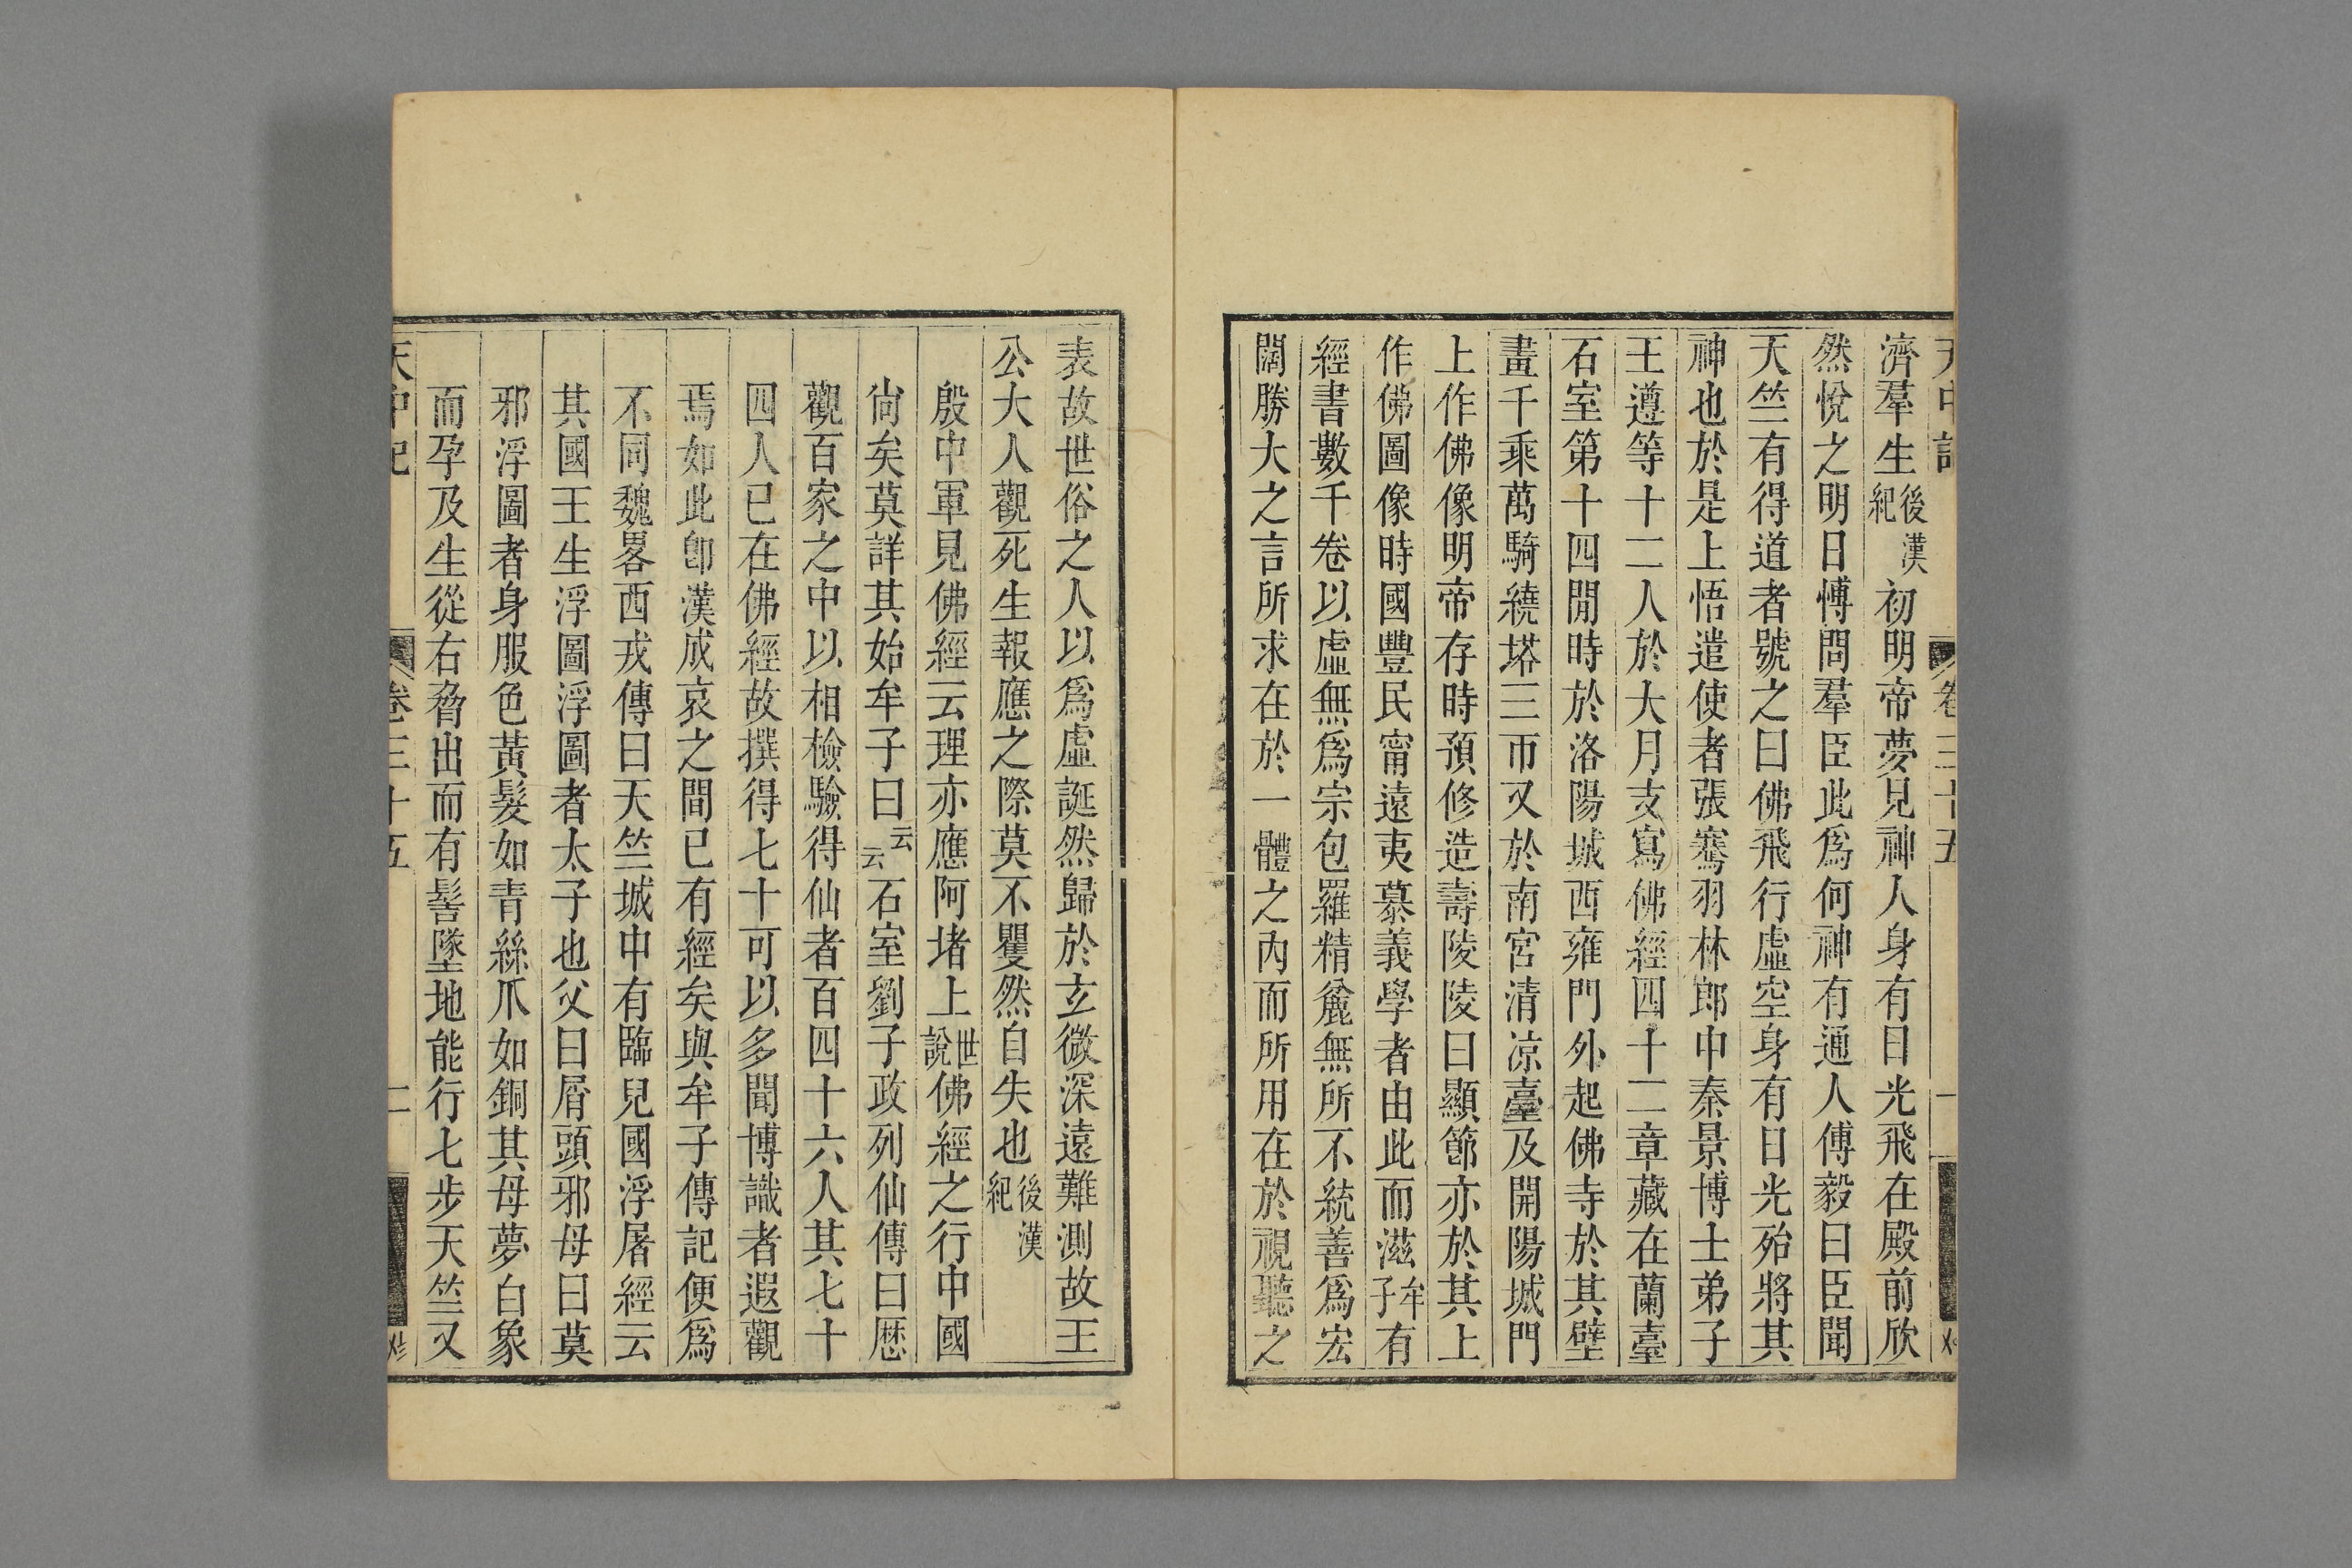 天中記
卷三十五
一
濟羣生後漢紀初明帝夢見神人身有日光飛在殿前欣
然悅之明日愽問羣臣此爲何神有通人傅毅曰臣聞
天竺有得道者號之曰佛飛行虛空身有日光殆將其
神也於是上悟遣使者張騫羽林郎中秦景博士弟子
王遵等十二人於大月支寫佛經四十二章藏在蘭臺
石室第十四閒時於洛陽城西雍門外起佛寺於其壁
畫千乘萬騎繞塔三帀又於南宮清凉臺及開陽城門
上作佛像明帝存時預修造壽陵陵曰顯節亦於其上
作佛圖像時國豐民甯遠夷慕義學者由此而滋牟子有
經書數千卷以虛無爲宗包羅精麄無所不統善爲宏
闊勝大之言所求在於一體之內而所用在於視聽之
表故世俗之人以爲虛誕然歸於玄微深遠難測故王
公大人觀死生報應之際莫不瞿然自失也後漢紀
殷中軍見佛經云理亦應阿堵上世說佛經之行中國
尙矣莫詳其始牟子曰云云石室劉子政列仙傳曰厯
觀百家之中以相檢驗得仙者百四十六人其七十
四人已在佛經故撰得七十可以多聞博識者遐觀
焉如此卽漢成哀之間已有經矣與牟子傳記便爲
不同魏畧西戎傳曰天竺城中有臨兒國浮屠經云
其國王生浮圖浮圖者太子也父曰屑頭邪母曰莫
邪浮圖者身服色黃髮如青絲爪如銅其母夢白象
而孕及生從右脅出而有髻墜地能行七步天竺又
天中記
卷三十五
二